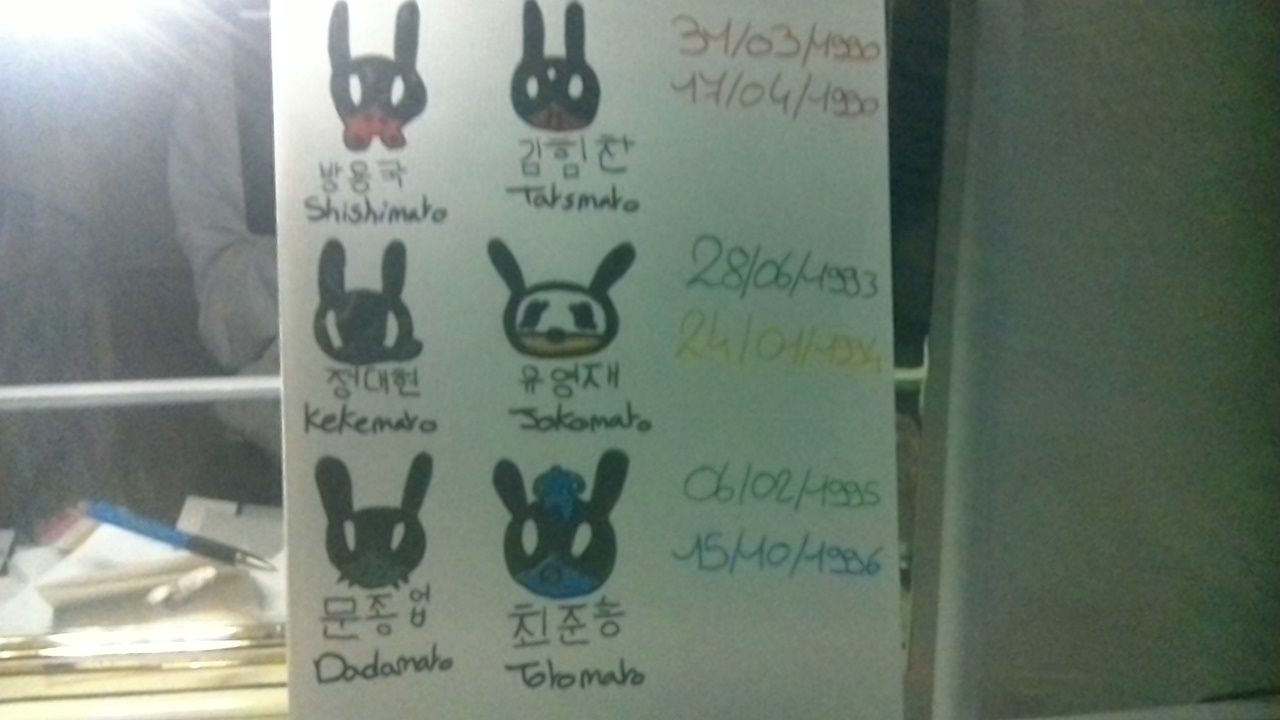 31/03/1990
17/04/1990
방용국 김힘찬
Shishimato Tatsmato
28/06/1993
24/01/1994
정대현 유영재
Kekemato Jokomato
06/02/1995
15/10/1996
문종업 최준홍
Dadamato Totomato